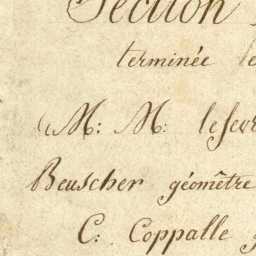 Section
terminée le
M: M: lefev
Beuscher géomêtre
C: Coppalle